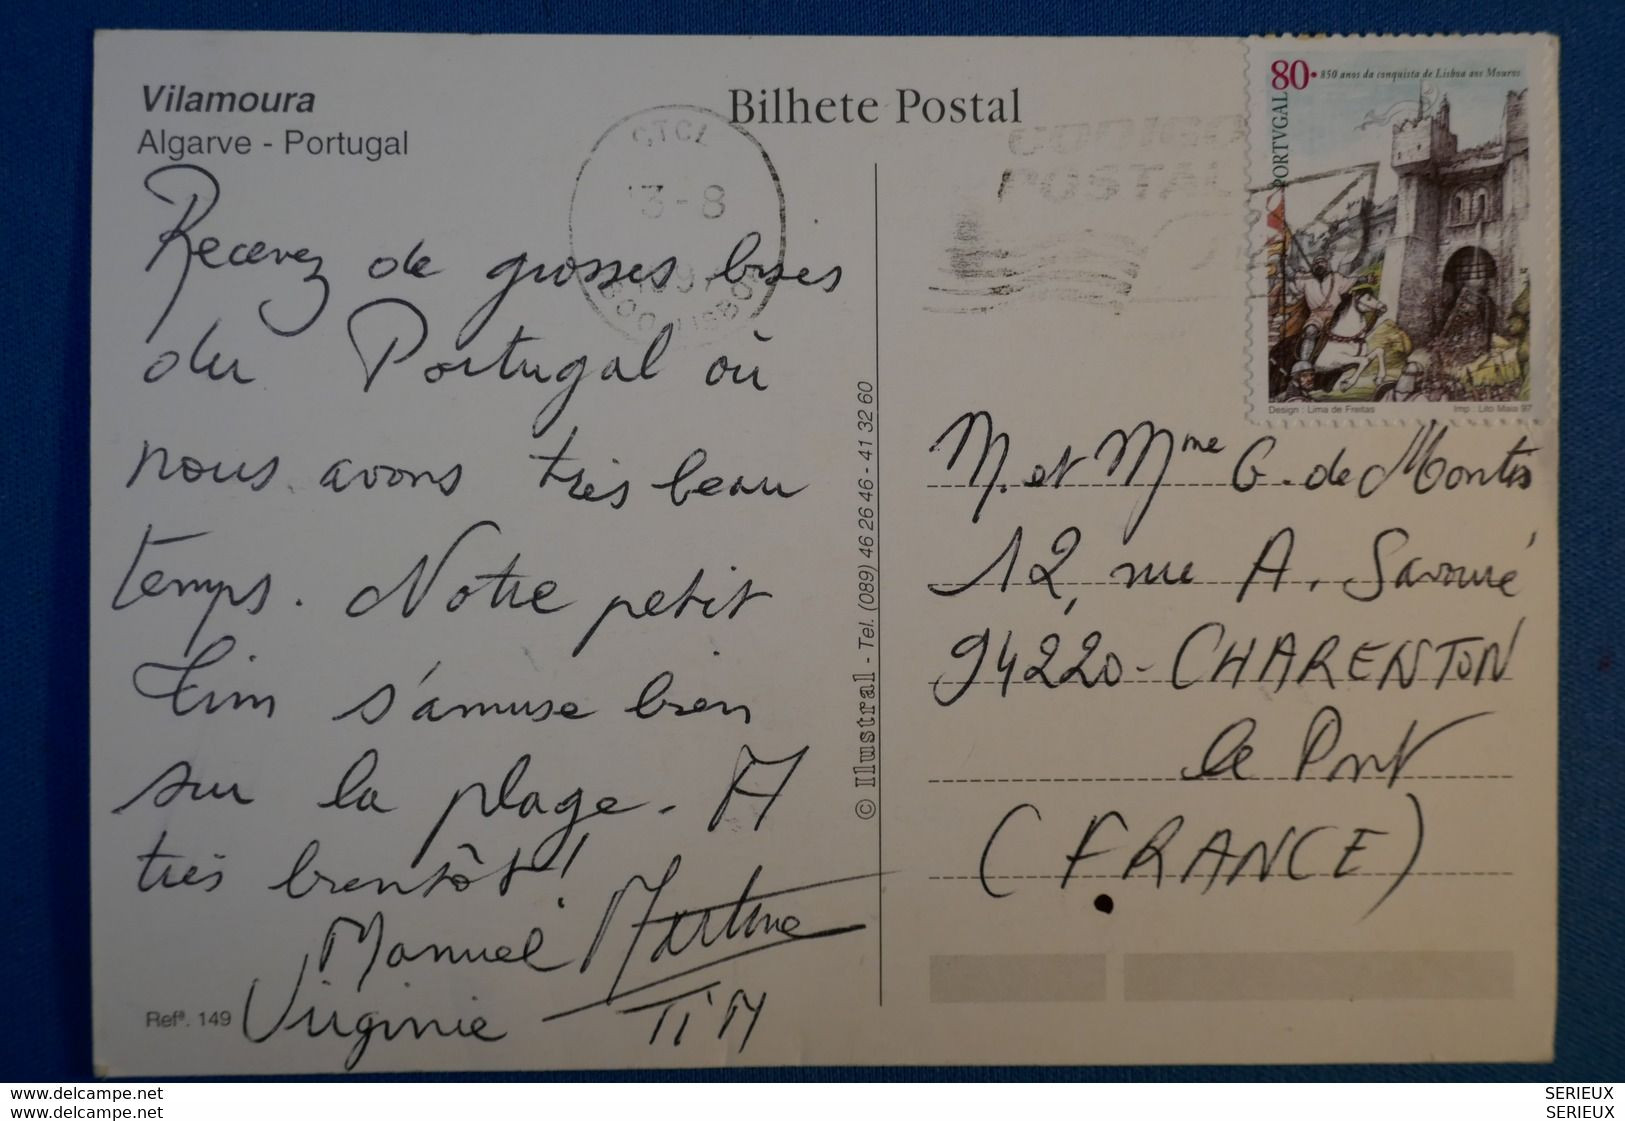 Vilamoura
Algarve - Portugal
Bilhete Postal
80
850 anos da conquista de Lisboa aos Mouros
PORTVGAL
Design : Lima de Freitas
Imp : Lito Maia 97
CTCL
3-8
CODIGO
POSTAL
Recevez de grosses bises
du Portugal où
nous avons très beau
temps. Notre petit
Tim s'amuse bien
sur la plage. A
très bientôt!
Manuel Martine
Virginie - TiM
M. et Mme G. de Montis
12, rue A. Savouré
94220 - CHARENTON
le Pont
(FRANCE)
© Ilustral - Tel. (089) 46 26 46 - 41 32 60
Refª. 149
delcampe.net
delcampe.net
SERIEUX
SERIEUX